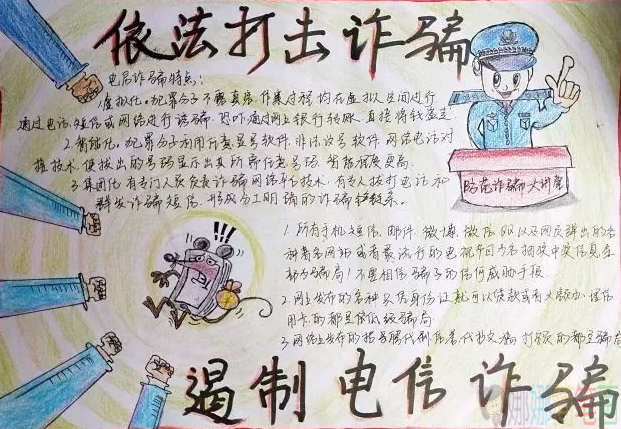 依法打击诈骗
电信诈骗特点:
1.虚拟化。犯罪分子不需真实,作案过程均在虚拟空间进行
通过电话、短信或网络进行诱骗、恐吓,通过网上银行转账,直接将钱盗走
2.智能化。犯罪分子利用任意显号软件、非法改号软件、网络电话对
接技术,使拨出的号码显示出其所需任意号码,智能程度更高
3.集团化,有专门人员负责诈骗网络平台技术,有专人拨打电话和
群发诈骗短信,形成分工明确的诈骗链条。
防范诈骗大讲堂
1.所有手机短信、邮件、微博、微信、QQ以及网页弹出的各
种著名网站或者最流行的电视节目为名抽奖中奖信息全
部为骗局!不要相信骗子的任何威胁手段.
2.网上发布的各种只凭身份证就可以贷款或者大额办理信
用卡的都是低级骗局
3.网络上发布的招
遏制电信诈骗